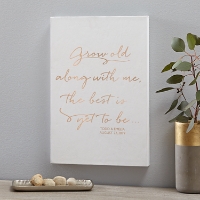 Grow old
along with me,
the best is
yet to be...